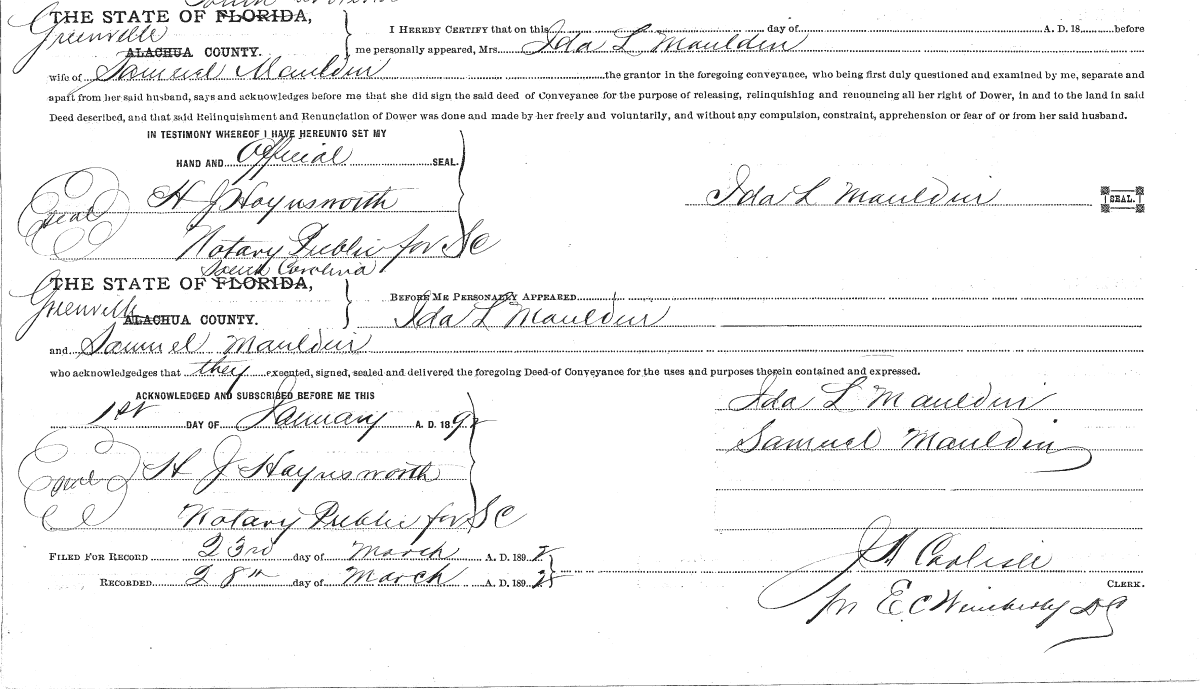 South Carolina
THE STATE OF FLORIDA,
I HEREBY CERTIFY that on this day of A. D. 18 before
Greenville
ALACHUA COUNTY.
me personally appeared, Mrs. Ida L Mauldin
wife of Samuel Mauldin the grantor in the foregoing conveyance, who being first duly questioned and examined by me, separate and
apart from her said husband, says and acknowledges before me that she did sign the said deed of Conveyance for the purpose of releasing, relinquishing and renouncing all her right of Dower, in and to the land in said
Deed described, and that said Relinquishment and Renunciation of Dower was done and made by her freely and voluntarily, and without any compulsion, constraint, apprehension or fear of or from her said husband.
IN TESTIMONY WHEREOF I HAVE HEREUNTO SET MY
HAND AND Official SEAL.
Seal H J Haynsworth
Ida L Mauldin SEAL.
Notary Public for SC
South Carolina
THE STATE OF FLORIDA,
BEFORE ME PERSONALLY APPEARED
Greenville
ALACHUA COUNTY.
Ida L Mauldin
and Samuel Mauldin
who acknowledgedges that they executed, signed, sealed and delivered the foregoing Deed of Conveyance for the uses and purposes therein contained and expressed.
ACKNOWLEDGED AND SUBSCRIBED BEFORE ME THIS
Ida L Mauldin
1st DAY OF January A. D. 1892
Samuel Mauldin
Seal H J Haynsworth
Notary Public for SC
FILED FOR RECORD 23rd day of March A. D. 1892
J A Carlisle
RECORDED 28th day of March A. D. 1892
CLERK.
pr E. C Wimberly DC